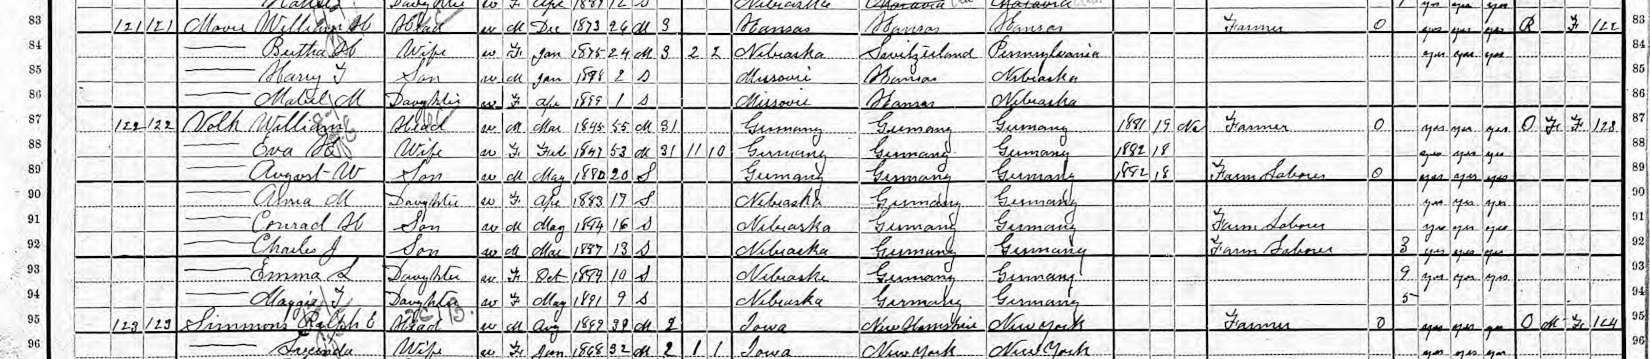 Daughter W F Apr 12 S Nebraska Moravia Moravia yes yes yes
83 121 121 William H Head W M Dec 1873 26 M 3 Kansas Kansas Kansas Farmer 0 yes yes yes R F 122 83
84 —— Bertha Wife W F Jan 1875 24 M 3 2 2 Nebraska Switzerland Pennsylvania yes yes yes 84
85 —— Harry F Son W M Jan 2 S Missouri Kansas Nebraska 85
86 —— Mabel M Daughter W F Apr 1899 1 S Missouri Kansas Nebraska 86
87 122 122 Volk William Head W M Mar 1845 55 M 31 Germany Germany Germany 1881 19 Na Farmer 0 yes yes yes O F F 123 87
88 —— Eva Wife W F Feb 1847 53 M 31 11 10 Germany Germany Germany 1882 18 yes yes yes 88
89 —— August W Son W M May 1880 20 S Germany Germany Germany 1882 18 Farm Laborer 0 yes yes yes 89
90 —— Anna M Daughter W F Apr 1883 17 S Nebraska Germany Germany yes yes yes 90
91 —— Conrad H Son W M May 1884 16 S Nebraska Germany Germany Farm Laborer yes yes yes 91
92 —— Charles J Son W M Mar 1887 13 S Nebraska Germany Germany Farm Laborer 3 yes yes yes 92
93 —— Emma L Daughter W F Oct 1889 10 S Nebraska Germany Germany 9 yes yes yes 93
94 —— Maggie F Daughter W F May 1891 9 S Nebraska Germany Germany 5 94
95 123 123 Simmons Ralph E Head W M Aug M 2 Iowa New Hamshire New York Farmer 0 yes yes yes O M F 124 95
96 —— Wife W F Jan 1868 32 M 2 1 1 Iowa New York New York yes yes yes 96